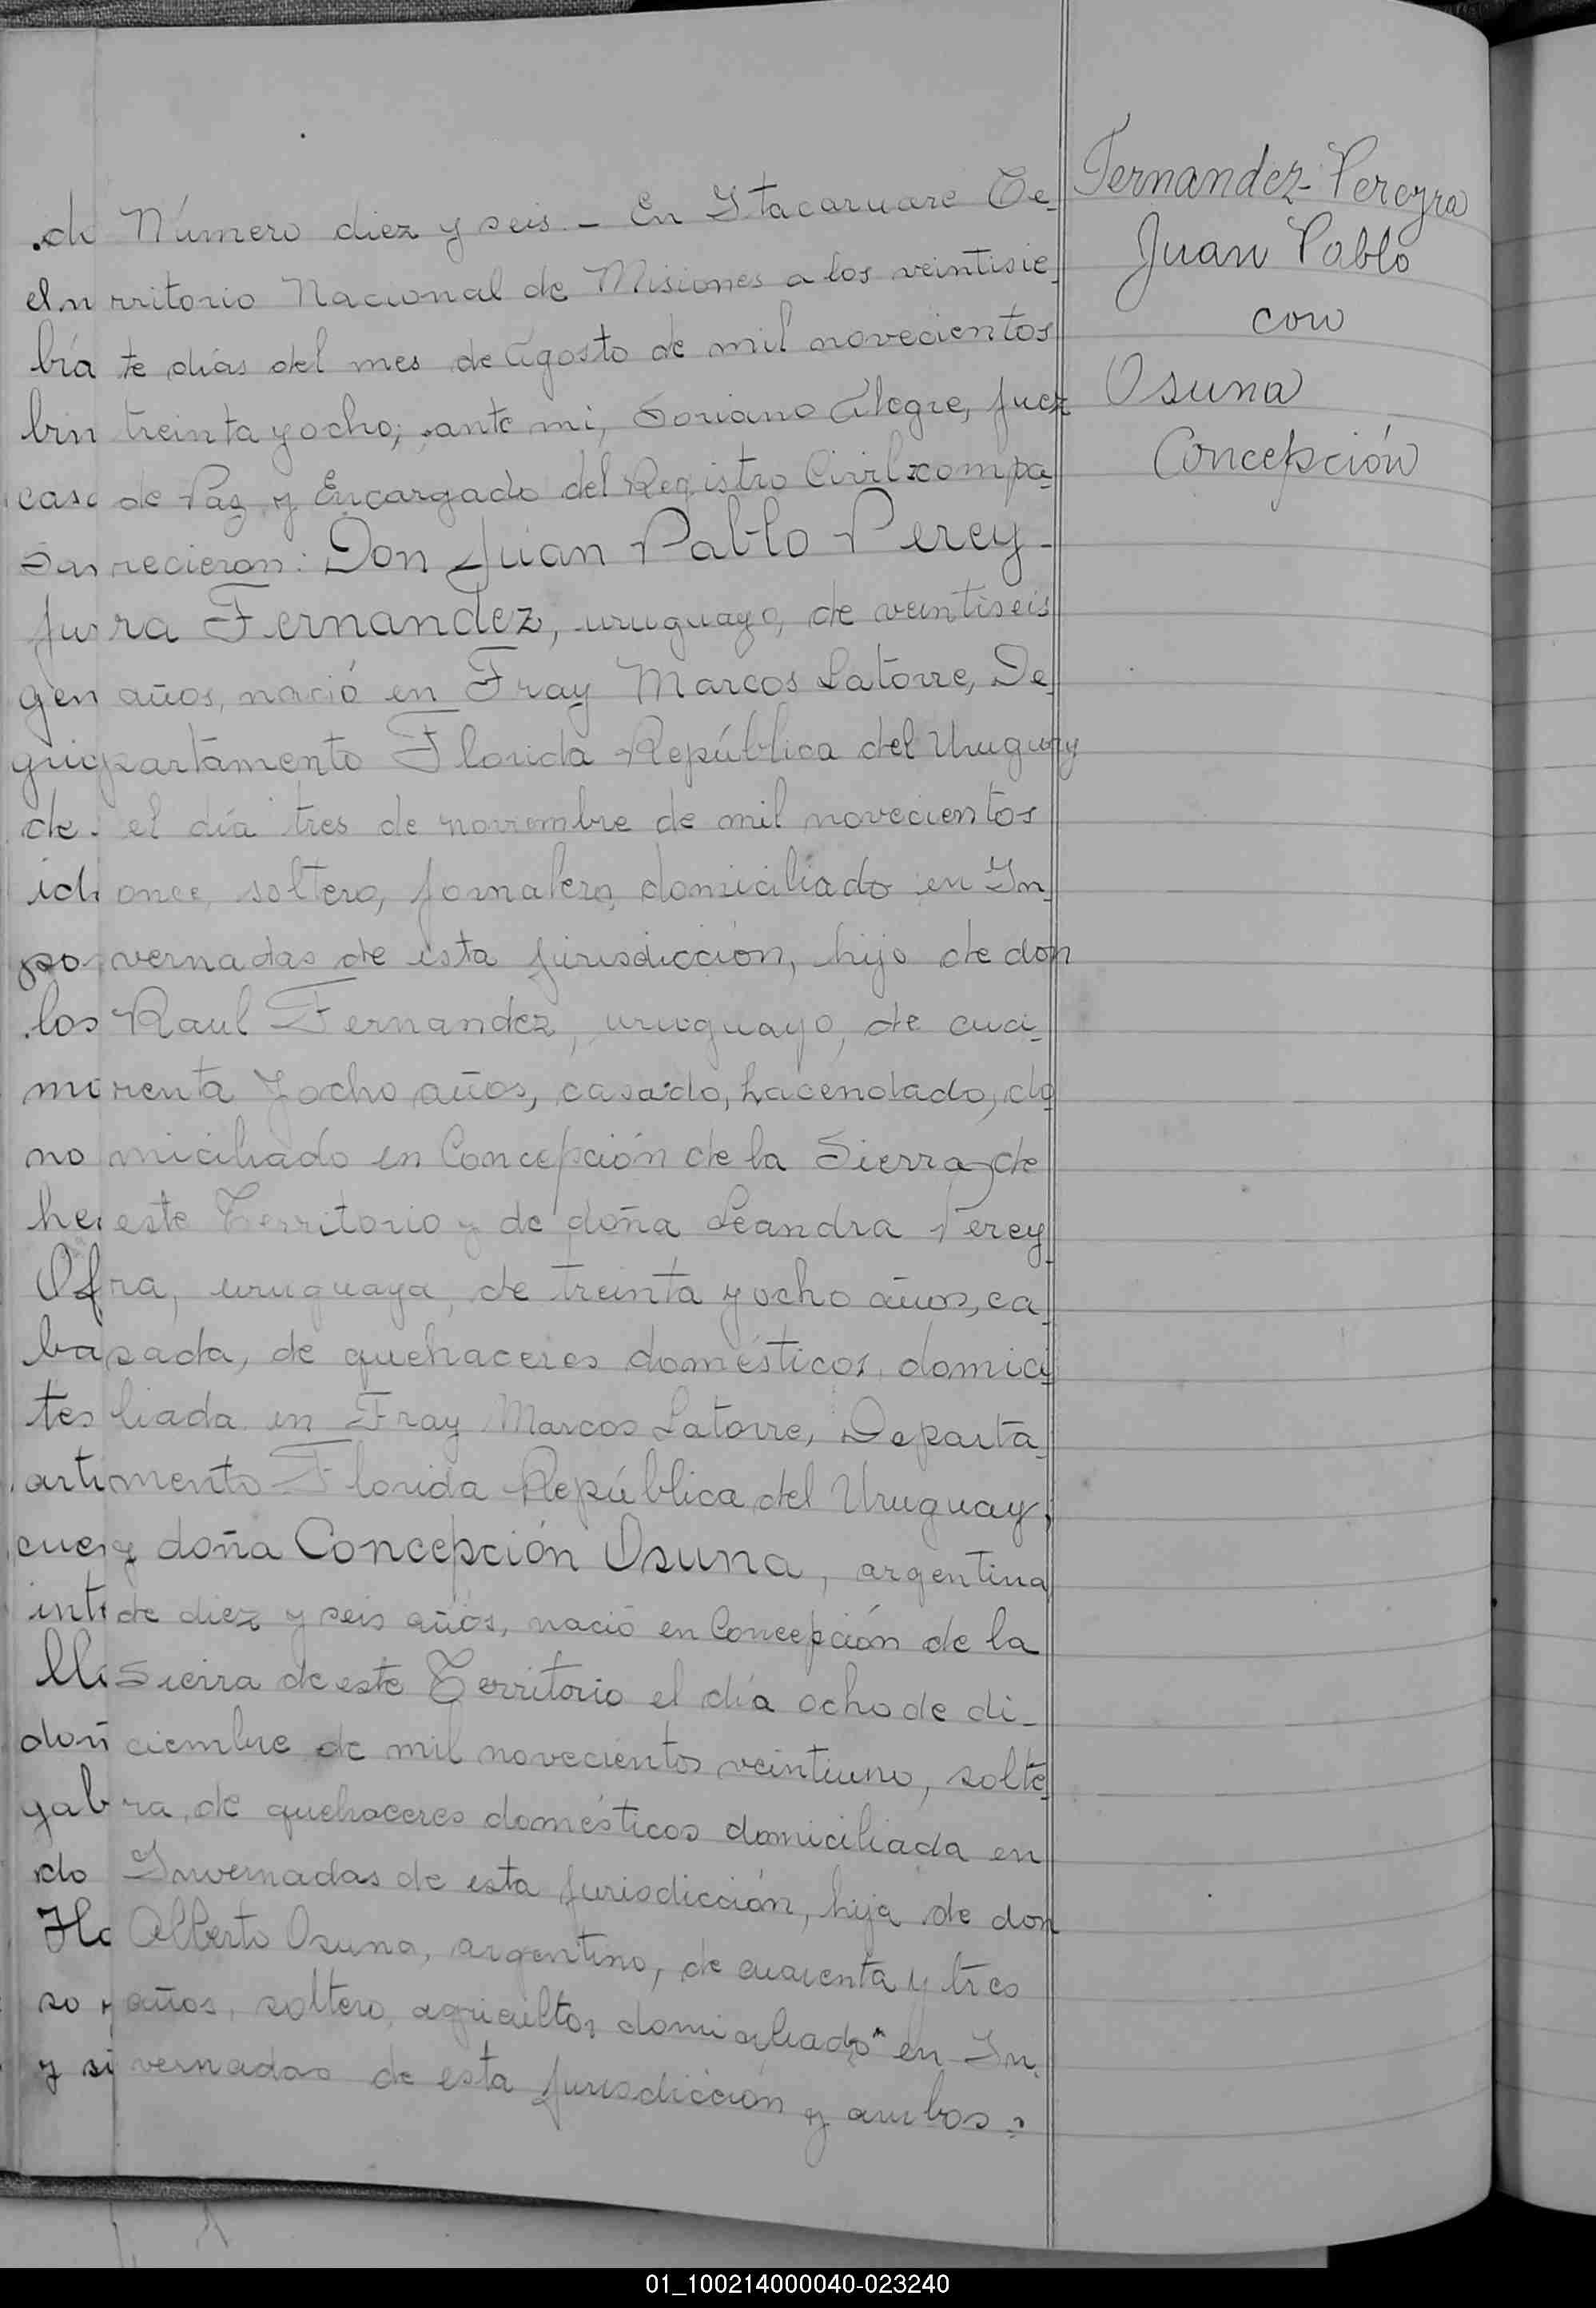 Número diez y seis. - En Itacaruare Te-
rritorio Nacional de Misiones a los veintisie-
te días del mes de Agosto de mil novecientos
treinta y ocho, ante mi, Soriano Alegre, Juez
de Paz y Encargado del Registro Civil: compa-
recieron: Don Juan Pablo Perey-
ra Fernandez, uruguayo, de veintiseis
años, nació en Fray Marcos Latorre, De-
partamento Florida República del Uruguay
el día tres de noviembre de mil novecientos
once, soltero, jornalero, domiciliado en In-
vernadas de esta jurisdicción, hijo de don
Raul Fernandez, uruguayo, de cua-
renta y ocho años, casado, hacendado, do-
miciliado en Concepción de la Sierra de
este Territorio y de doña Leandra Perey-
ra, uruguaya, de treinta y ocho años, ca-
sada, de quehaceres domésticos, domici-
liada en Fray Marcos Latorre, Departa-
mento Florida República del Uruguay;
y doña Concepción Osuna, argentina,
de diez y seis años, nació en Concepción de la
Sierra de este Territorio el día ocho de di-
ciembre de mil novecientos veintiuno, solte-
ra, de quehaceres domésticos domiciliada en
Invernadas de esta jurisdicción, hija de don
Alberto Osuna, argentino, de cuarenta y tres
años, soltero, agricultor domiciliado en In-
vernadas de esta jurisdicción y ambos
Fernandez-Pereyra
Juan Pablo
con
Osuna
Concepción
de
bía
casa
de
los
no
tes
do
y si
01_100214000040-023240